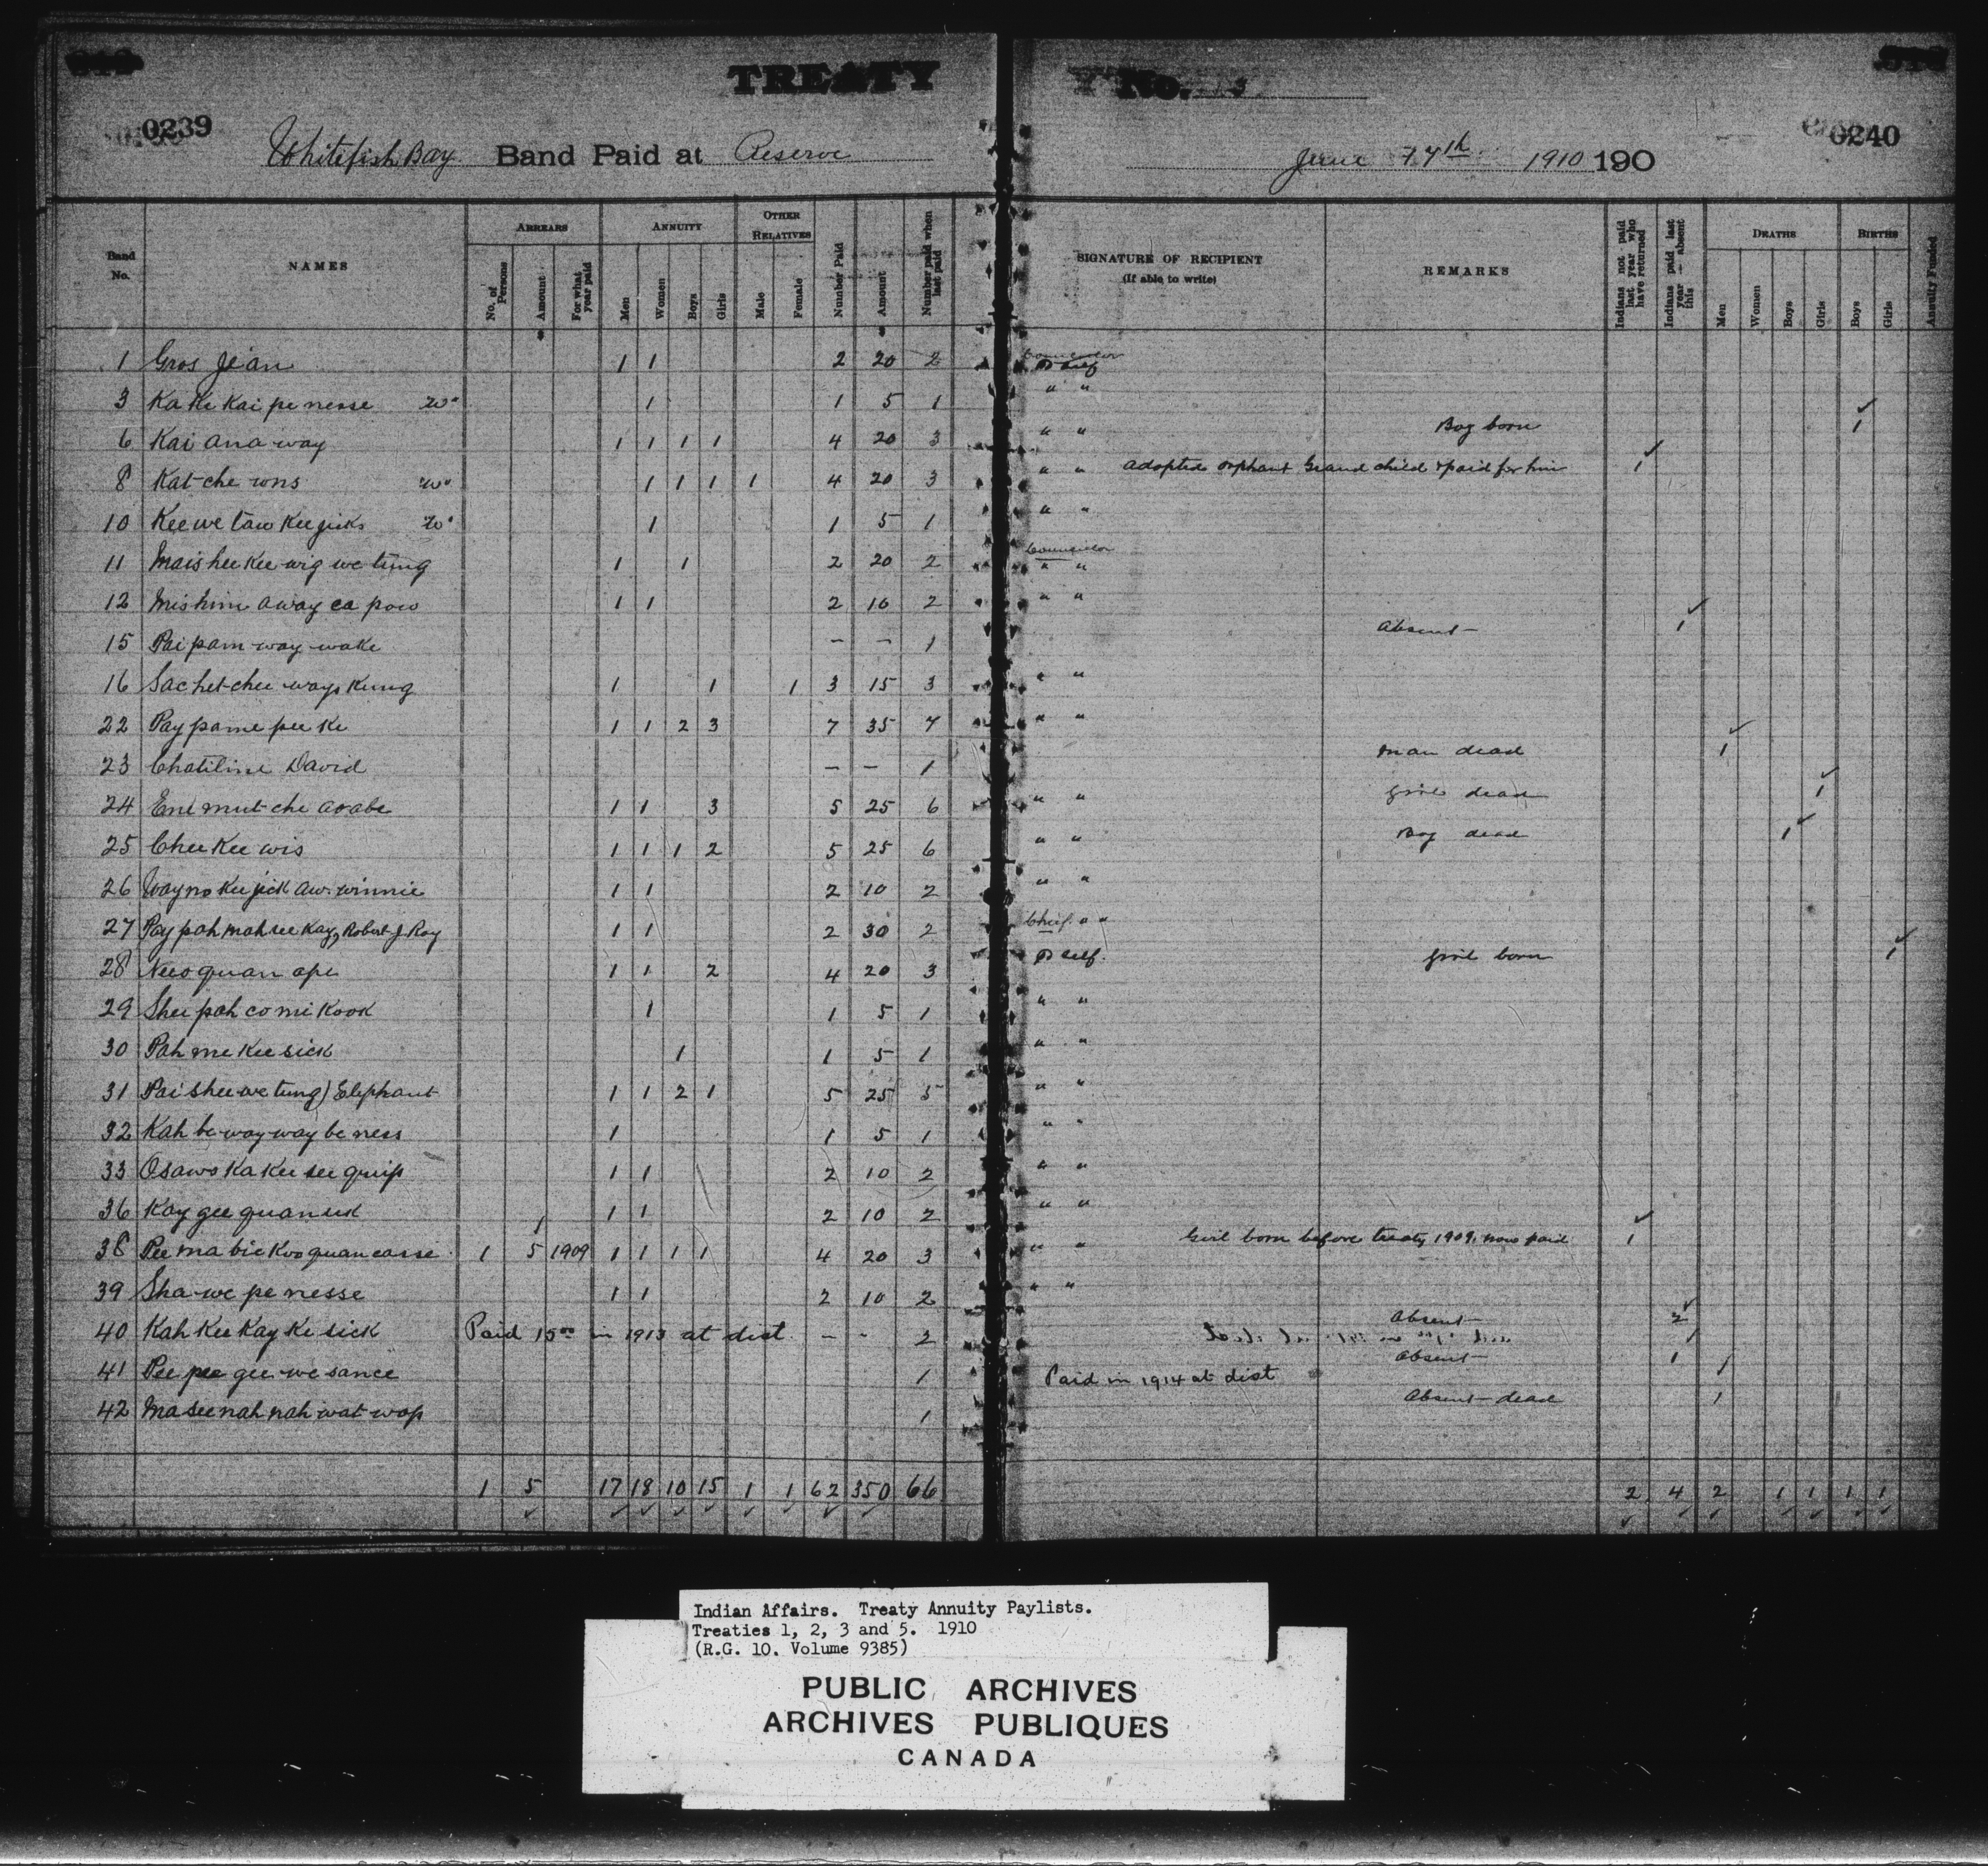 TREATY No. 3
0239
0240
Whitefish Bay Band Paid at Reserve
June 1910 190
Band No. NAMES ARREARS ANNUITY OTHER RELATIVES Number Paid Amount Number paid when last paid SIGNATURE OF RECIPIENT (If able to write) REMARKS Indians not paid last year who have returned Indians paid last year — absent this DEATHS BIRTHS Annuity Funded
No. of Persons Amount For what year paid Men Women Boys Girls Male Female Men Women Boys Girls Boys Girls
1 Gros Jean 1 1 2 20 2 Councilor self
3 Ka Ke Kai pe nesse Wo 1 1 5 1 " "
6 Kai ana way 1 1 1 1 4 20 3 " " Boy born 1
8 Kat che wns Wo 1 1 1 1 4 20 3 " " adopted orphant Grand child & paid for him 1
10 Kee we taw Kee jicks Wo 1 1 5 1 " "
11 Mais hee Kee wig we tung 1 1 2 20 2 Councilor " "
12 Mis him away ca pow 1 1 2 10 2 " "
15 Pai pam way wake – – 1 Absent 1
16 Sachet chee ways Kung 1 1 1 3 15 3 " "
22 Pay pame pee Ke 1 1 2 3 7 35 7 " "
23 Chatiline David – – 1 Man dead 1
24 Eni mut che aoabe 1 1 3 5 25 6 " " Girl dead 1
25 Chee Kee wis 1 1 1 2 5 25 6 " " Boy dead 1
26 Way no Kee jick aw winnie 1 1 2 10 2 " "
27 Pay pah mah see Kay, Robert J. Roy 1 1 2 30 2 Chief " "
28 Neeo quan ape 1 1 2 4 20 3 self. Girl born 1
29 Shee pah co mi Kook 1 1 5 1 " "
30 Pah me Kee sick 1 1 5 1 " "
31 Pai shee we tung) Elephant 1 1 2 1 5 25 5 " "
32 Kah be way way be ness 1 1 5 1 " "
33 Osaws Ka Kee see quip 1 1 2 10 2 " "
36 Kay gee quan uk 1 1 2 10 2 " "
38 Pee ma bic Koo quan casse 1 5 1909 1 1 1 1 4 20 3 " " Girl born before treaty 1909, now paid 1
39 Sha we pe nesse 1 1 2 10 2 " "
40 Kah Kee Kay Ke sick Paid 15 00 in 1913 at dist. – – 2 Absent 2
41 Pee pee gee we sance 1 Paid in 1914 at dist Absent 1 1
42 Ma see nah nah wat wop 1 Absent – dead 1
1 5 17 18 10 15 1 1 62 350 66 2 4 2 1 1 1 1
Indian Affairs. Treaty Annuity Paylists.
Treaties 1, 2, 3 and 5. 1910
(R.G. 10. Volume 9385)
PUBLIC ARCHIVES
ARCHIVES PUBLIQUES
CANADA